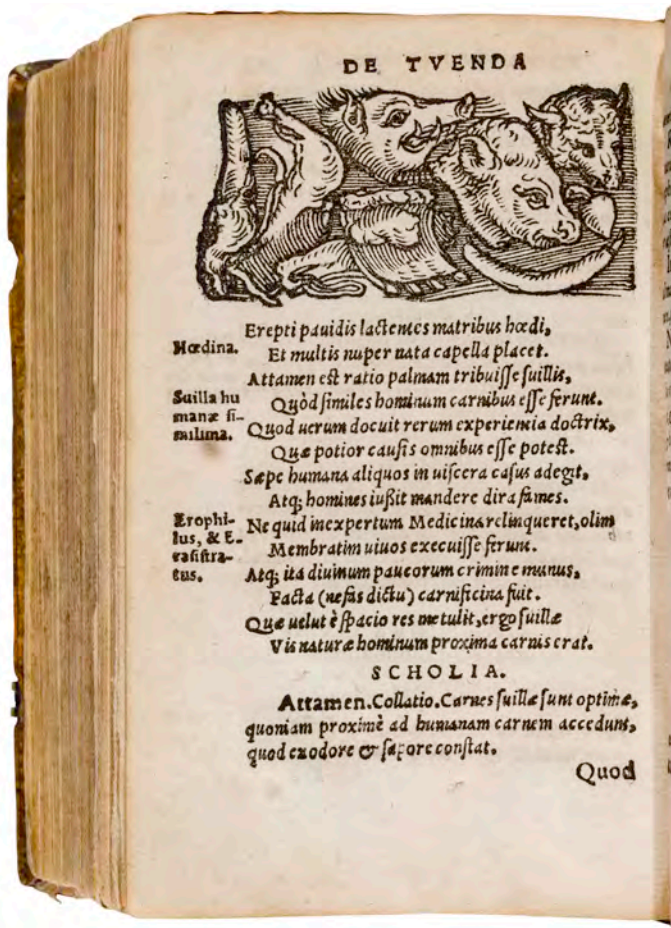 DE TVENDA
Erepti pauidis lactentes matribus hœdi,
Hœdina.
Et multis nuper nata capella placet.
Attamen est ratio palmam tribuisse suillis,
Suilla hu
manæ si-
milima.
Quòd similes hominum carnibus esse ferunt.
Quod uerum docuit rerum experientia doctrix,
Quæ potior causis omnibus esse potest.
Sæpe humana aliquos in uiscera casus adegit,
Atq; homines iußit mandere dira fames.
Erophi-
lus, & E-
rasistra-
tus.
Ne quid inexpertum Medicina relinqueret, olim
Membratim uiuos execuisse ferunt.
Atq; ita diuinum paucorum crimine munus,
Facta (nefas dictu) carnificina fuit.
Quæ uelut è spacio res me tulit, ergo suillæ
Vis naturæ hominum proxima carnis erat.
SCHOLIA.
Attamen. Collatio. Carnes suillæ sunt optimæ,
quoniam proximè ad humanam carnem accedunt,
quod ex odore & sapore constat.
Quod